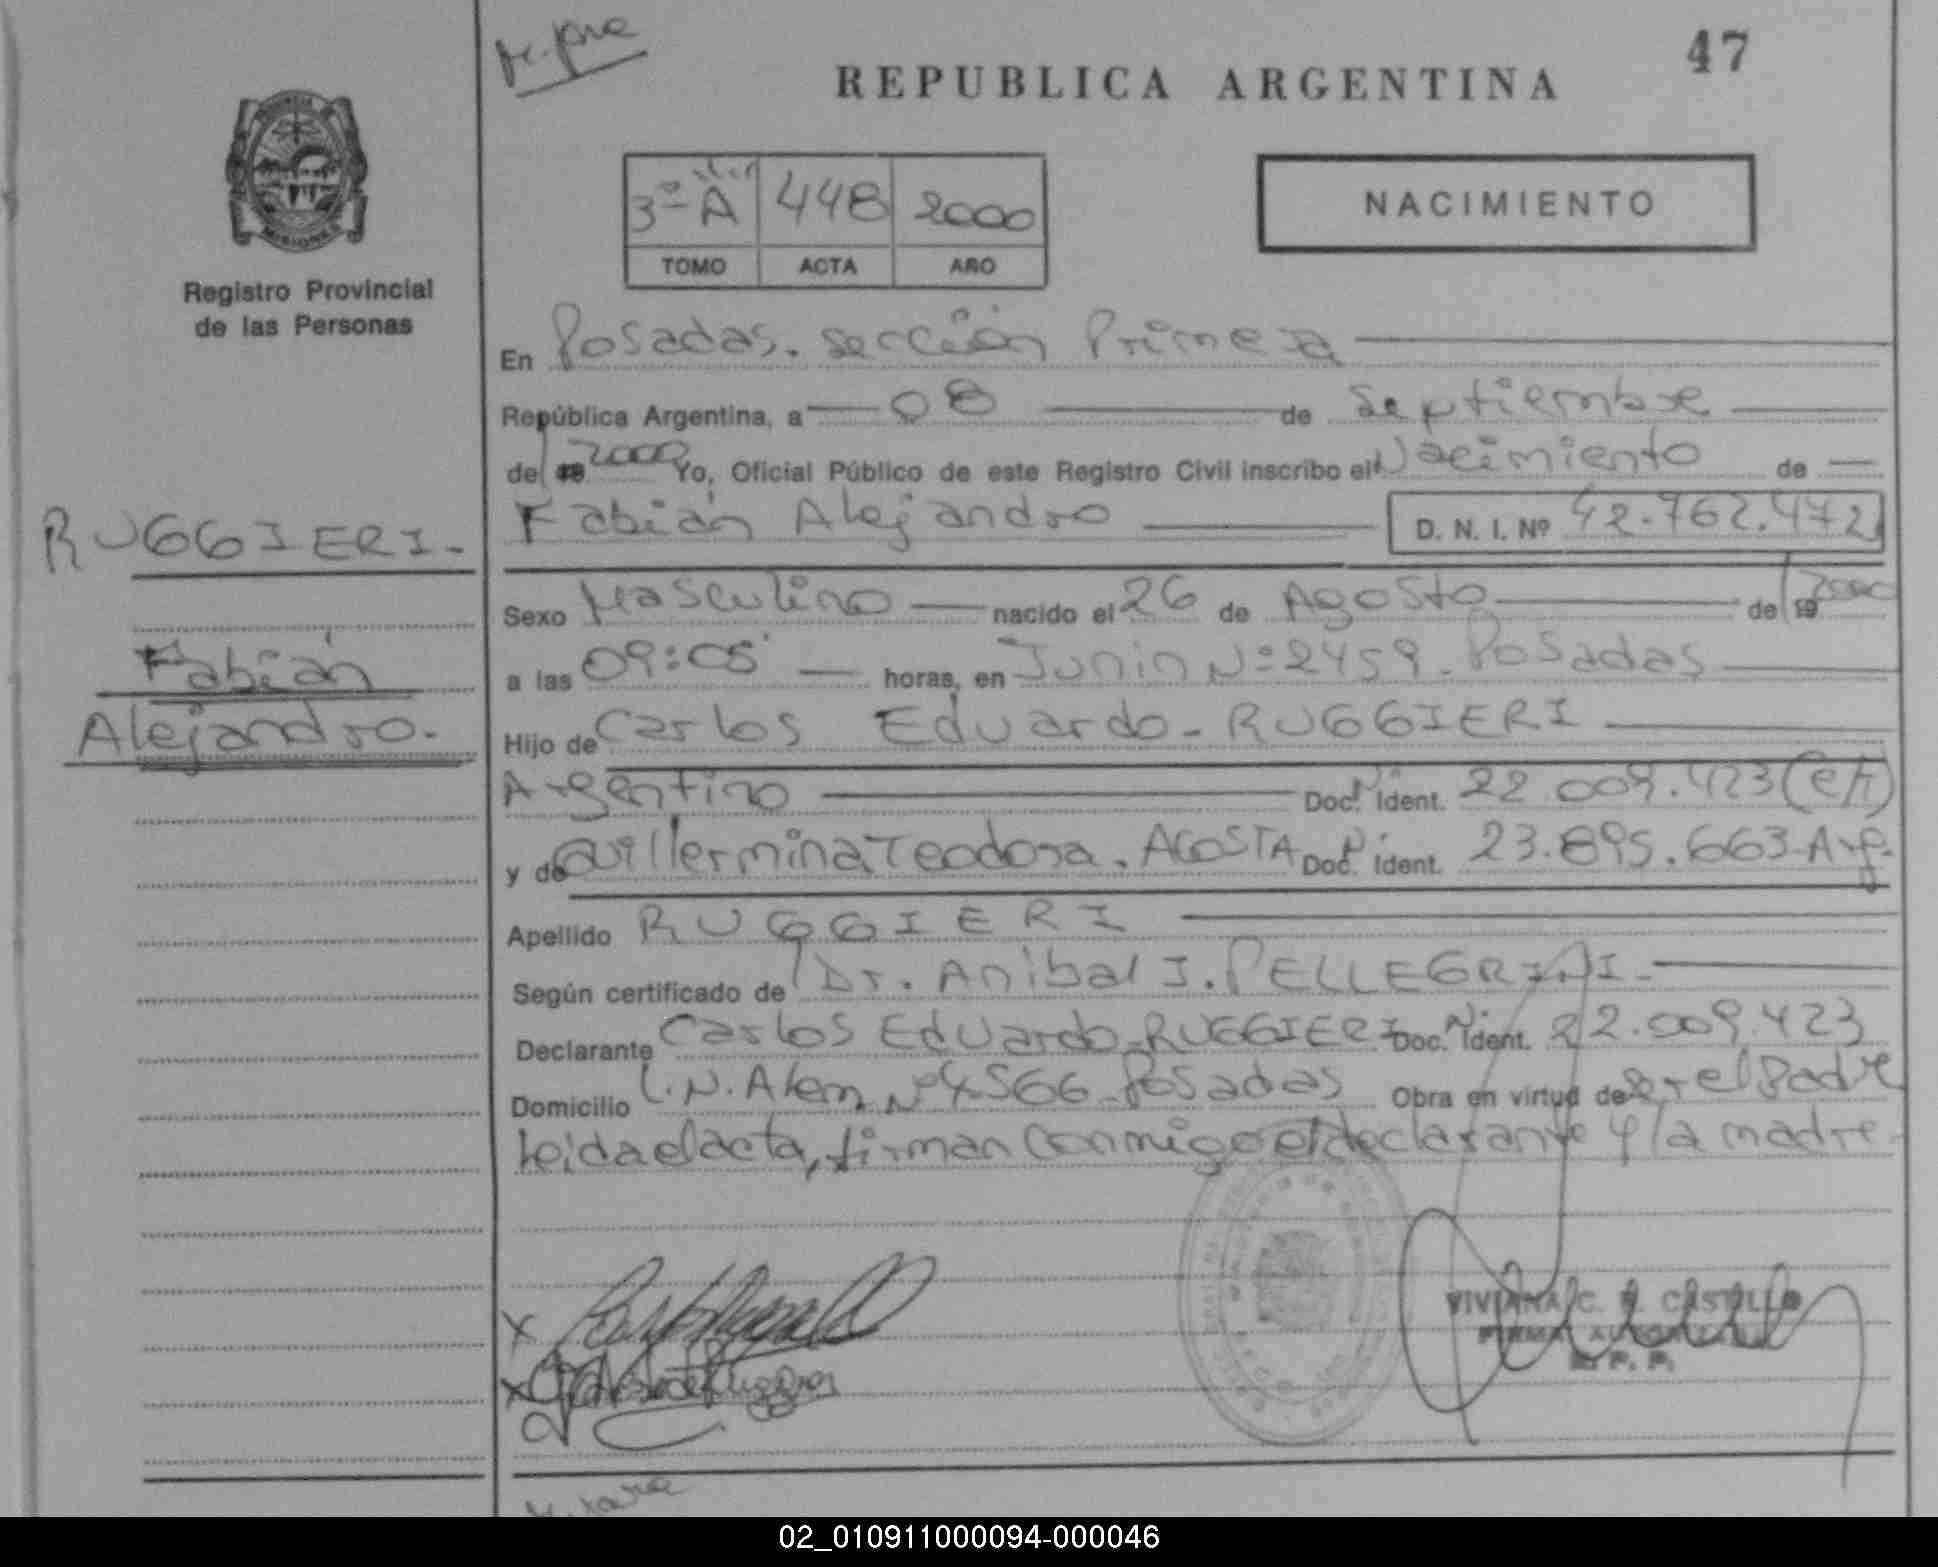 47
REPUBLICA ARGENTINA
MISIONES
Registro Provincial
de las Personas
3º A 448 2000
TOMO ACTA AÑO
NACIMIENTO
En Posadas. sección Primera
República Argentina, a 08 de Septiembre
de 19 2000 Yo, Oficial Público de este Registro Civil inscribo el Nacimiento de
Fabián Alejandro D. N. I. Nº 42.762.472
RUGGIERI.
Fabián
Alejandro.
Sexo Masculino nacido el 26 de Agosto de 19 2000
a las 09:05 horas, en Junin Nº 2459. Posadas
Hijo de Carlos Eduardo - RUGGIERI
Argentino Doc. Ident. 22.009.423
y de Guillermina Teodora. ACOSTA Doc. Ident. 23.895.663 Arg.
Apellido RUGGIERI
Según certificado de Dr. Anibal J. PELLEGRINI.
Declarante Carlos Eduardo RUGGIERI Doc. Ident. 22.009.423
Domicilio L.N. Alem Nº 4566 Posadas Obra en virtud de Ser el Padre
Leida el acta, firman conmigo el declarante y la madre.
VIVIANA C. R. CASTILLO
02_010911000094-000046